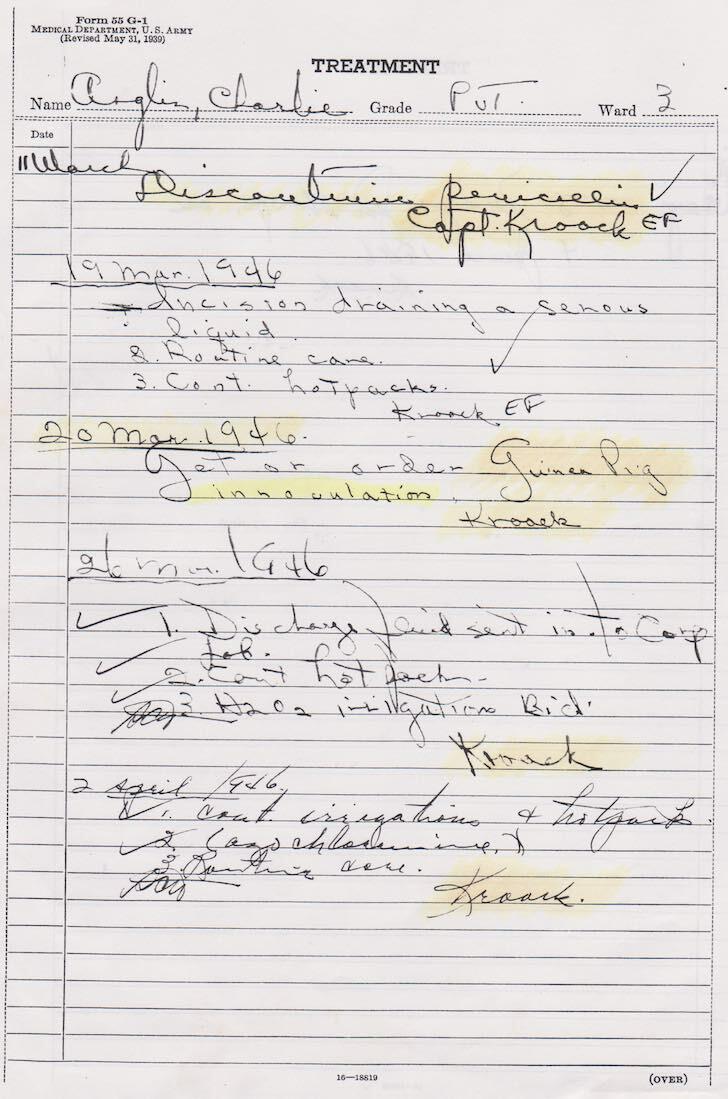 Form 55 G-1
MEDICAL DEPARTMENT, U. S. ARMY
(Revised May 31, 1939)
TREATMENT
Name Anglin, Charlie Grade Pvt. Ward 3
Date
11 March
Discontinue penicillin
Capt. Kroack EF
19 Mar. 1946
Incision draining a serious
liquid.
2. Routine care.
3. Cont. hotpacks.
Kroack EF
20 Mar. 1946.
Get or order Guinea Pig
innoculation.
Kroack
26 Mar. 1946
1. Discharge fluid sent in to Corp
lab.
2. Cont hot packs
3. H2O2 irrigations Bid.
Kroack
2 April 1946.
1. cont. irrigations & hotpack.
2. (azochloramine)
3. Routine care.
Kroack.
16—18819
(OVER)